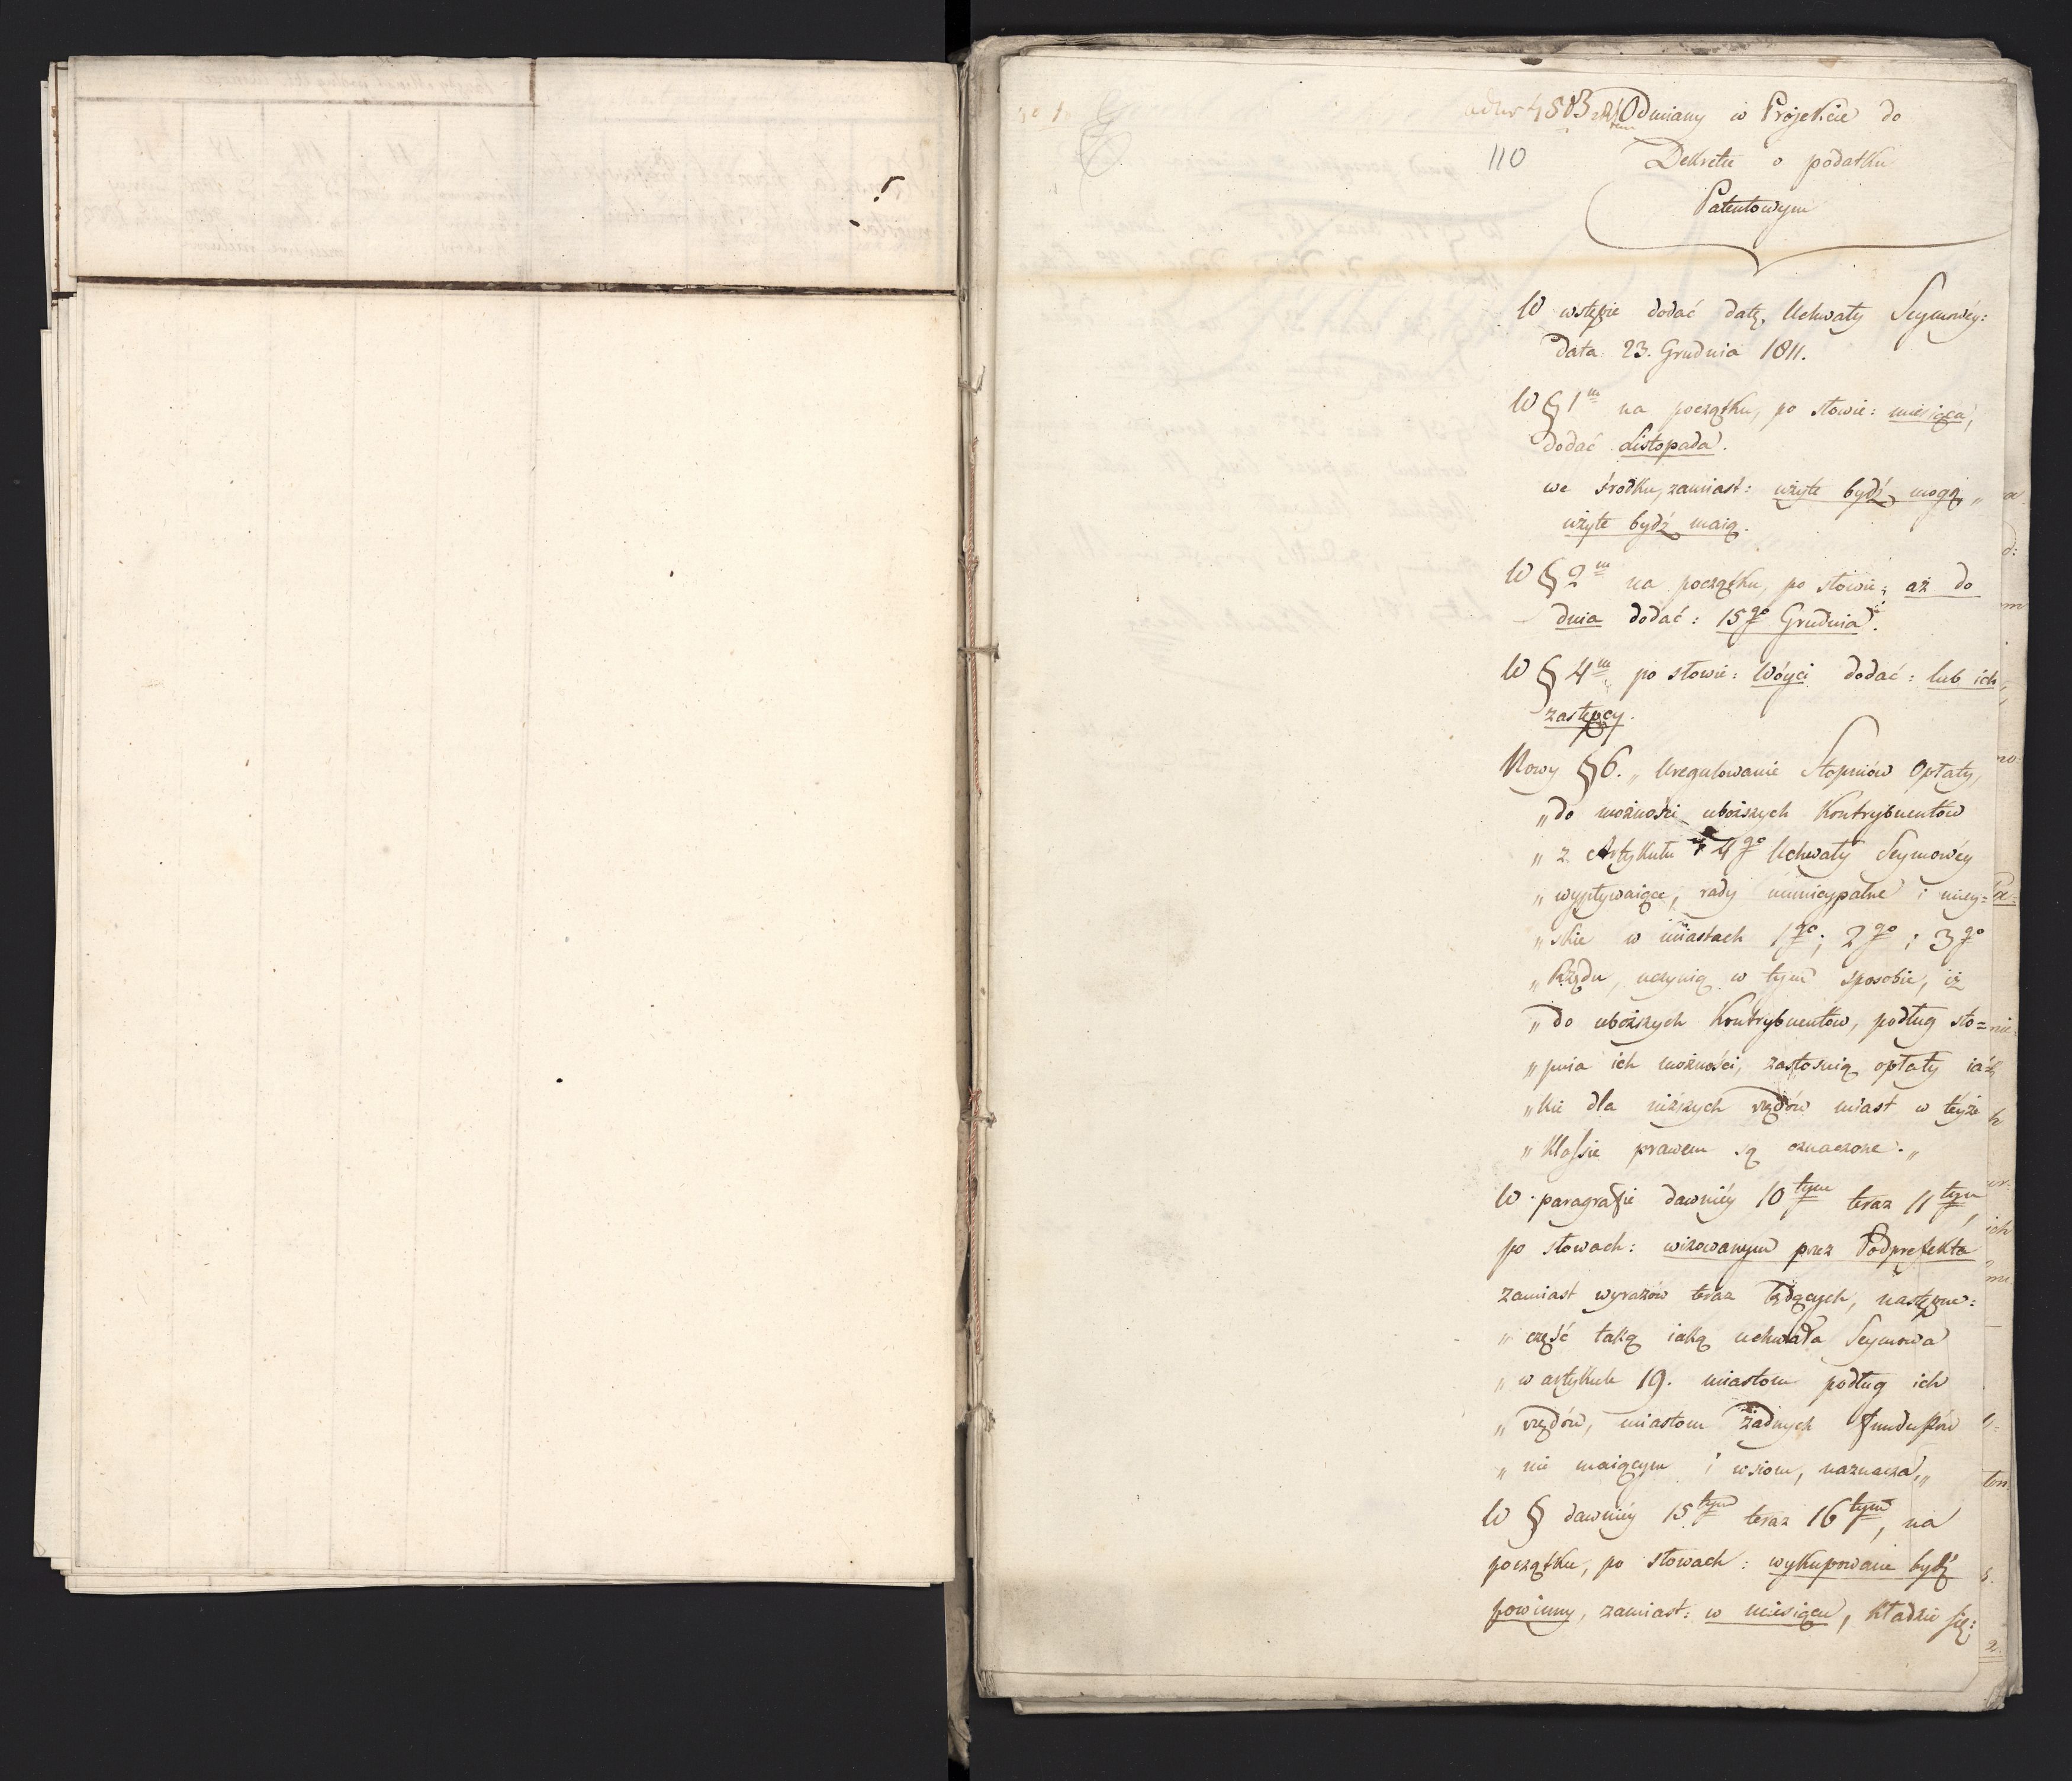 4803 Odmiany w Projekcie do
110 Dekretu o podatku
Patentowym
W wstępie dodać datę Uchwały Seymowéy:
data 23. Grudnia 1811.
W § 1m na początku, po słowie: miesiąca,
dodać Listopada.
we środku, zamiast: użyte bydź mogą „
użyte bydź maią.
W § 2m na początku, po słowie: aż do
dnia dodać: 15go Grudnia.
W § 4m po słowie: Wóyci dodać: lub ich
zastępcy.
Nowy § 6. „Uregulowanie Stopniów Opłaty,
„do możności uboższych Kontrybuentów
„z Artykułu 4go Uchwały Seymowéy
„wypływaiące, rady municypalne i miey=
„skie w miastach 1go; 2go i 3go
„Rzędu, uczynią w tym sposobie, iż
„do uboższych Kontrybuentów, podług sto=
„pnia ich możności, zastosuią opłaty ia=
„kie dla niższych rzędów miast w teyże
„Klassie prawem są oznaczone.„
W paragrafie dawniéy 10tym teraz 11tym,
po słowach: wizowanym przez Podprefekta
zamiast wyrazów teraz będących, następne:
„część taką iaką uchwała Seymowa
„w artykule 19. miastom podług ich
„rzędów, miastom żadnych funduszów
„nie maiącym i wsiom, naznacza„
W § dawniéy 15tym teraz 16tym, na
początku, po słowach: wykupowane bydź
powinny, zamiast: w miesiącu, kładzie się: